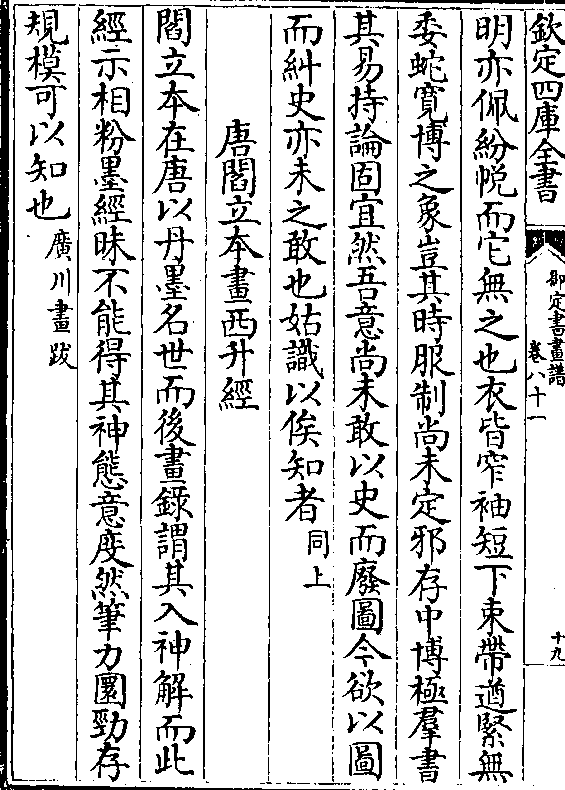 欽定四庫全書
御定書畫譜
卷八十一
十九
明亦佩紛帨而它無之也衣皆窄袖短下束帶遒緊無
委蛇寬博之象豈其時服制尚未定邪存中博極羣書
其易持論固宜然吾意尚未敢以史而廢圖今欲以圖
而糾史亦未之敢也姑識以俟知者同上
唐閻立本畫西升經
閻立本在唐以丹墨名世而後畫錄謂其入神解而此
經示相粉墨經昧不能得其神態意度然筆力圜勁存
規模可以知也廣川畫跋